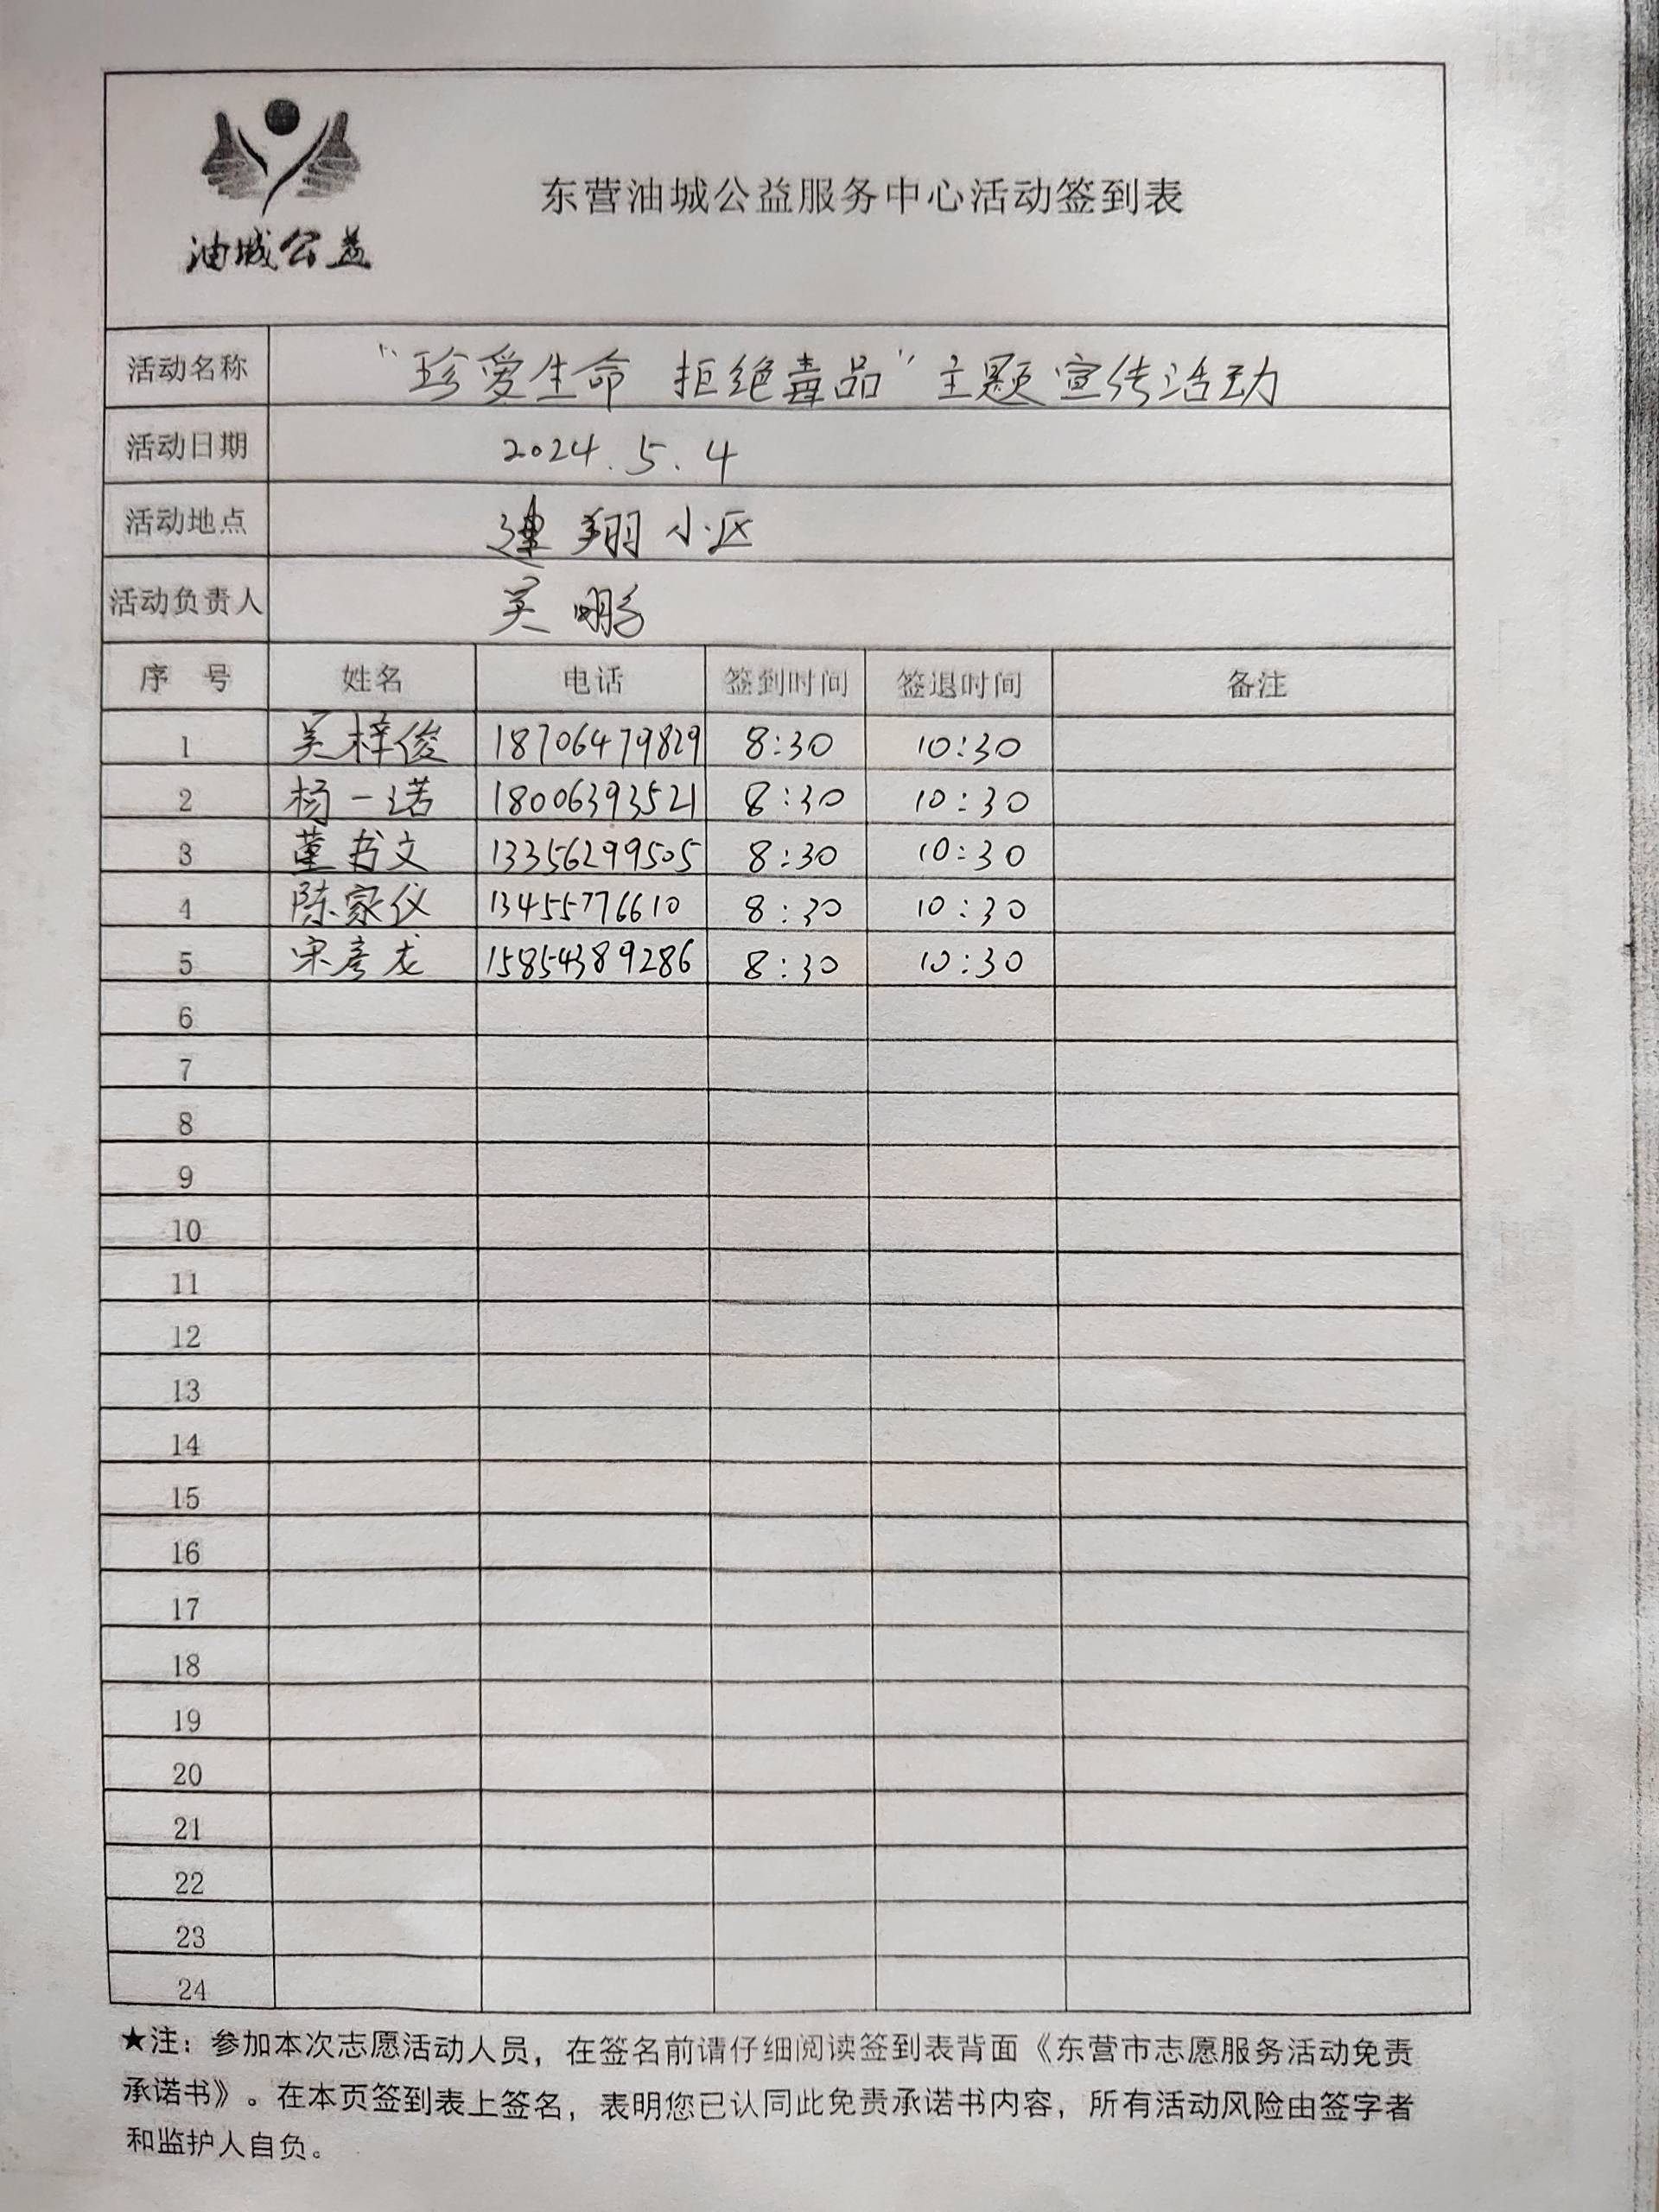 油城公益
东营油城公益服务中心活动签到表
活动名称 “珍爱生命 拒绝毒品”主题宣传活动
活动日期 2024.5.4
活动地点 建翔小区
活动负责人 吴鹏
序号 姓名 电话 签到时间 签退时间 备注
1 吴梓俊 18706479829 8:30 10:30
2 杨一诺 18006393521 8:30 10:30
3 董书文 13356299505 8:30 10:30
4 陈家仪 13455776610 8:30 10:30
5 宋彦龙 15854389286 8:30 10:30
6
7
8
9
10
11
12
13
14
15
16
17
18
19
20
21
22
23
24
★注：参加本次志愿活动人员，在签名前请仔细阅读签到表背面《东营市志愿服务活动免责
承诺书》。在本页签到表上签名，表明您已认同此免责承诺书内容，所有活动风险由签字者
和监护人自负。